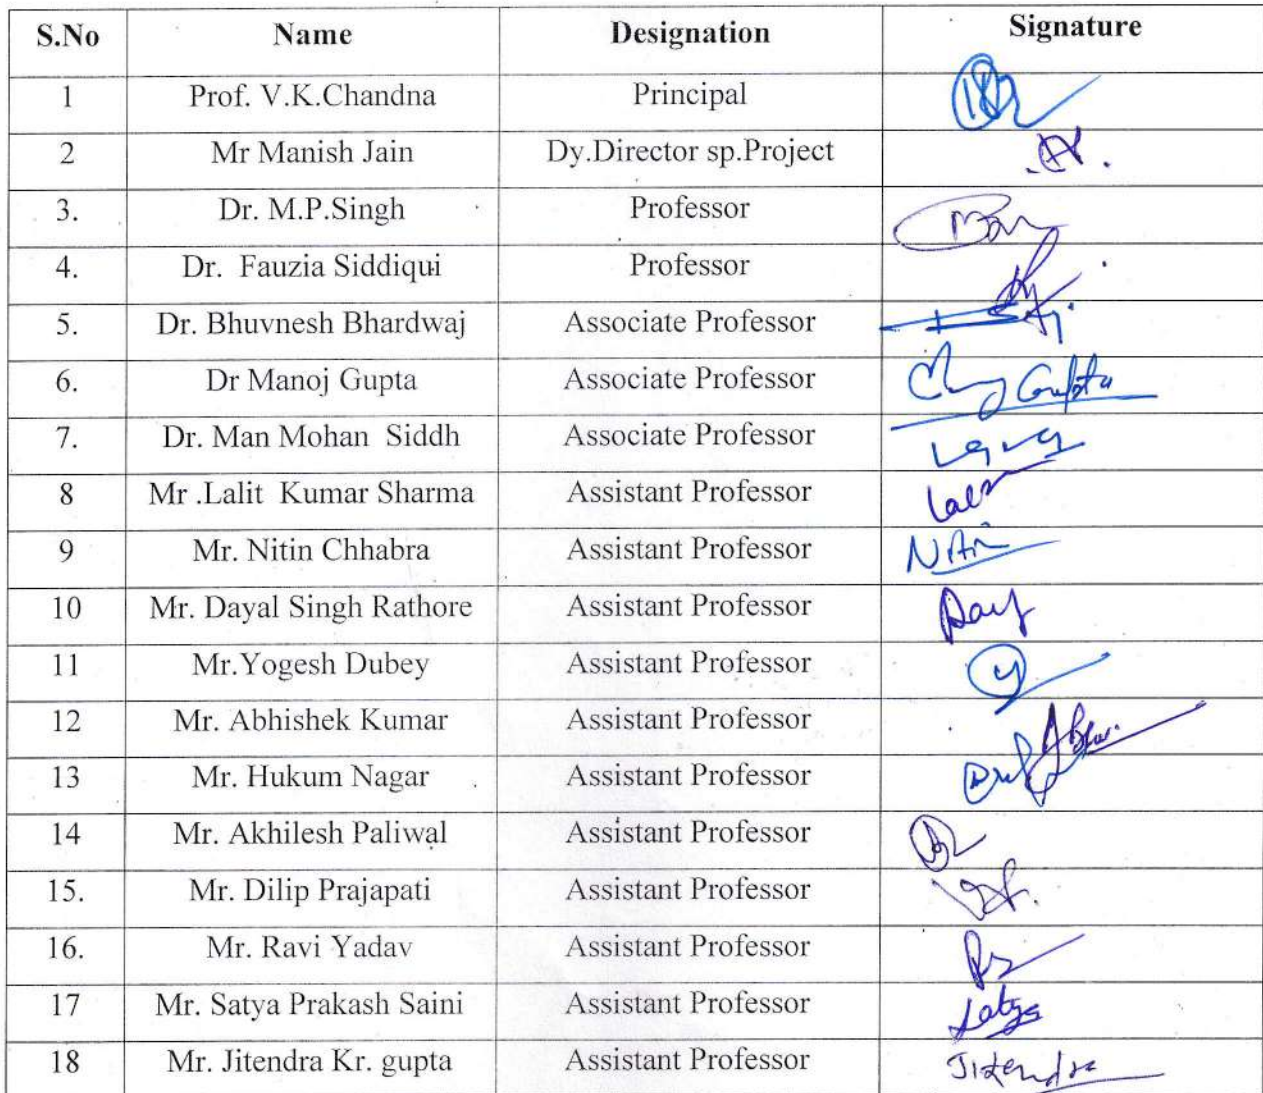 S.No Name Designation Signature
1 Prof. V.K.Chandna Principal
2 Mr Manish Jain Dy.Director sp.Project
3. Dr. M.P.Singh Professor
4. Dr. Fauzia Siddiqui Professor
5. Dr. Bhuvnesh Bhardwaj Associate Professor
6. Dr Manoj Gupta Associate Professor Gupta
7. Dr. Man Mohan Siddh Associate Professor
8 Mr .Lalit Kumar Sharma Assistant Professor
9 Mr. Nitin Chhabra Assistant Professor Nitin
10 Mr. Dayal Singh Rathore Assistant Professor
11 Mr.Yogesh Dubey Assistant Professor
12 Mr. Abhishek Kumar Assistant Professor
13 Mr. Hukum Nagar Assistant Professor
14 Mr. Akhilesh Paliwal Assistant Professor
15. Mr. Dilip Prajapati Assistant Professor
16. Mr. Ravi Yadav Assistant Professor
17 Mr. Satya Prakash Saini Assistant Professor Satya
18 Mr. Jitendra Kr. gupta Assistant Professor Jitendra